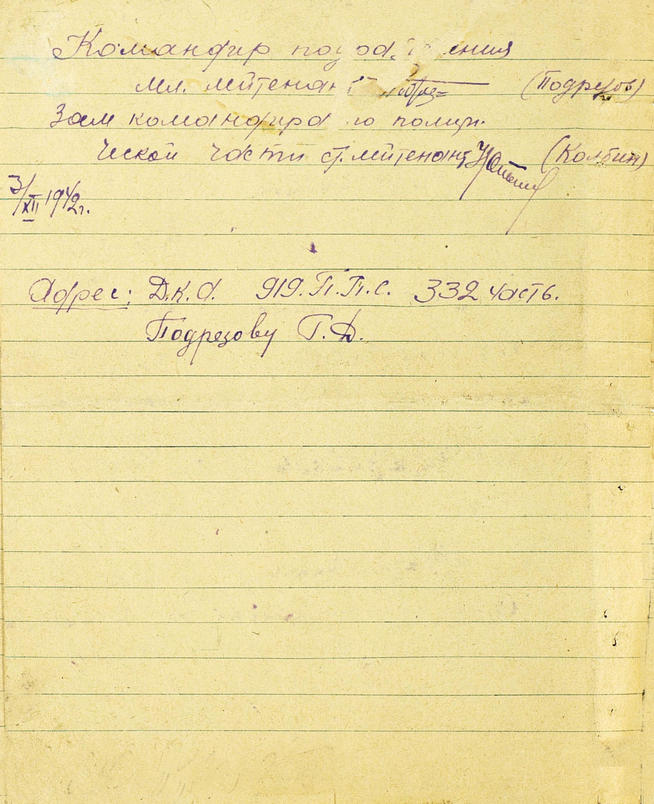 Командир подразделения
мл. лейтенант (Подрезов)
Зам командира по полити-
ческой части ст. лейтенант (Колбин)
3/XII 1942 г.
Адрес: Д.К.А. 919. П.П.С. 332 часть.
Подрезову Г. Д.